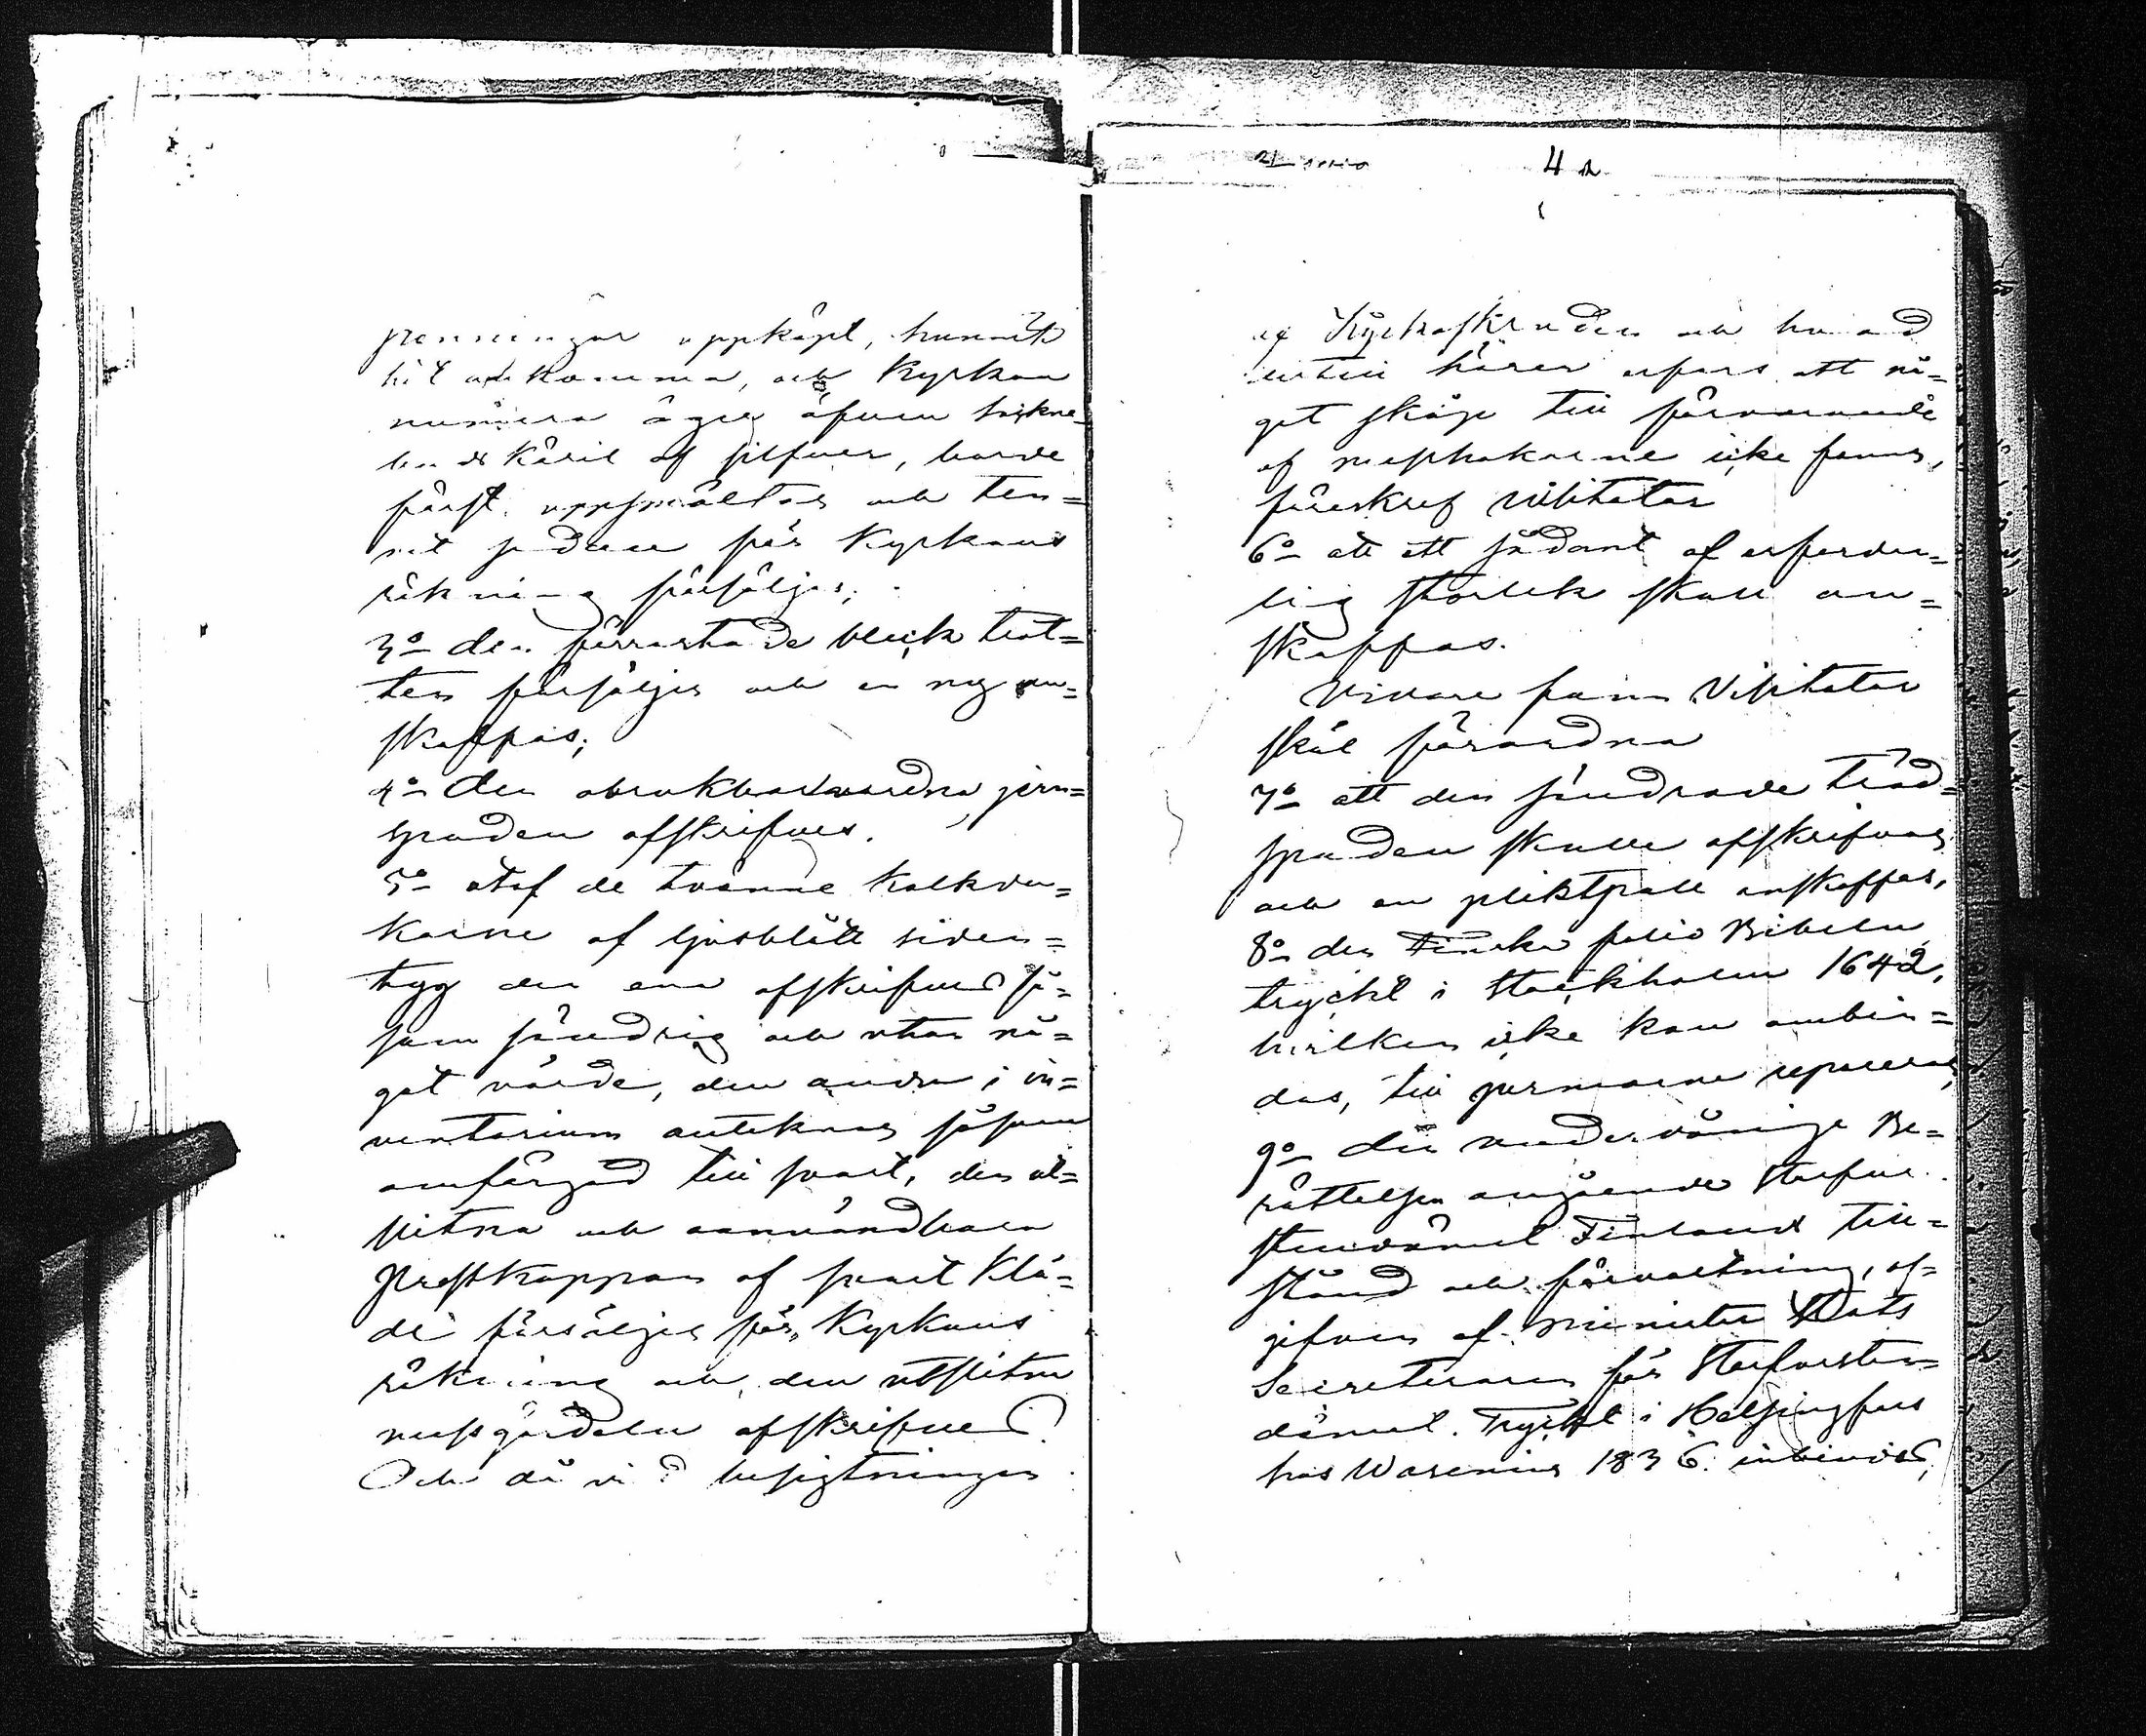 penningar uppköpt, hunnit
hit ankomma, och Kyrkan
numera äger äfven sockne-
buds Käril af silfver, borde
först uppsmältas och ten=
net sedan för Kyrkans
räkning försäljas;
3o den förrostade bleck trat=
ten försäljes och en ny an=
skaffas;
4o den obrukbarvordna jern=
spaden afskrifves.
5o utaf de tvänne Kalkdu=
karne af ljusblått siden=
tyg den ena afskrifves så=
som söndrig och utan nå=
got värde, den andra i in=
ventarium antecknas såsom
omfärgad till svart, den ut=
slitna och oanvändbara
Prestkappan af svart Klä=
de försäljes för Kyrkans
räkning och den utslitna
messgördeln afskrifves.
Och då vid besigtningen
4
af Kyrkoskruden och hvad
dertill hörer erfors att nå=
got skåp till förvarande
af messhakarne icke fanns,
föreskref Visitator
6o att ett sådant af erforder=
lig storlek skall an=
skaffas.
Vidare fann Visitator
skäl förordna
7o att den söndrade träd=
spaden skulle afskrifvas
och en pliktpall anskaffas,
8o den Finska folio Bibeln
tryckt i Stockholm 1642,
hvilken icke kan ombin=
das, till permarne repareras,
9o den underdånige Be=
rättelsen angående Storfur
stendömet Finland till=
stånd och förvaltning, af=
gifven af Minister Stats
Secreteraren för Storfursten=
dömet. Tryckt i Helsingfors
hos Wasenius 1836. inbindes,